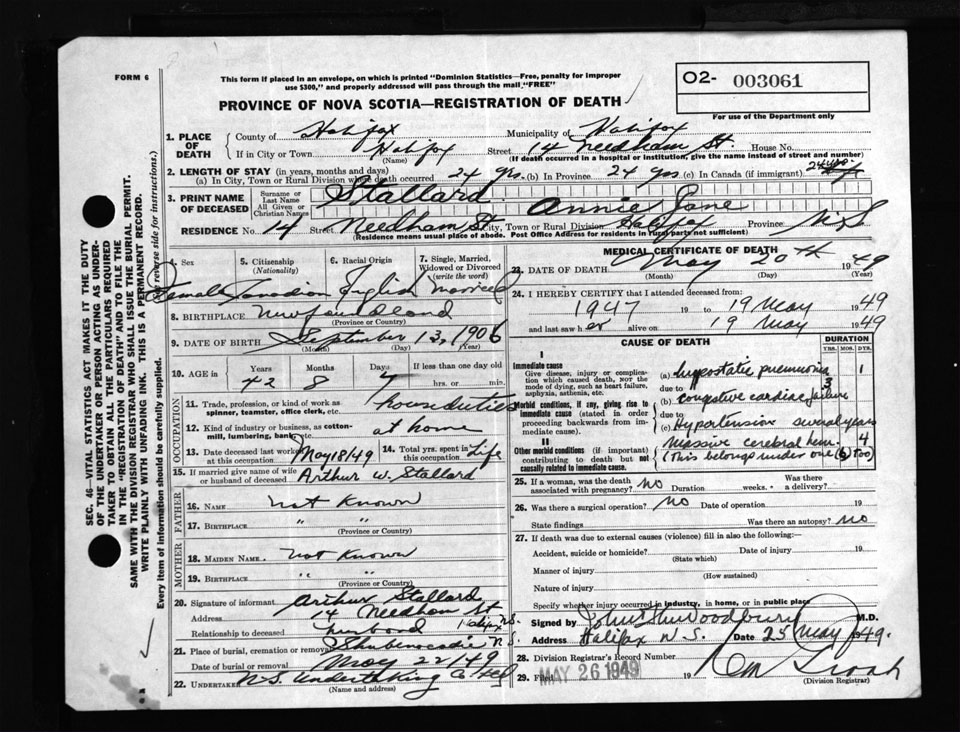 FORM 6
This form if placed in an envelope, on which is printed "Dominion Statistics—Free, penalty for improper
use $300," and properly addressed will pass through the mail "FREE"
O2- 003061
For use of the Department only
PROVINCE OF NOVA SCOTIA—REGISTRATION OF DEATH
1. PLACE OF DEATH
County of Halifax Municipality of Halifax
If in City or Town Halifax Street 14 Needham St. House No.
(Name) (If death occurred in a hospital or institution, give the name instead of street and number)
2. LENGTH OF STAY (in years, months and days)
(a) In City, Town or Rural Division where death occurred 24 yrs. (b) In Province 24 yrs (c) In Canada (if immigrant) 24 yrs
3. PRINT NAME OF DECEASED
Surname or Last Name Stallard
All Given or Christian Names Annie Jane
RESIDENCE No. 14 Street Needham St City, Town or Rural Division Halifax Province N.S
(Residence means usual place of abode. Post Office Address for residents in rural parts not sufficient)
4. Sex 5. Citizenship (Nationality) 6. Racial Origin 7. Single, Married, Widowed or Divorced (write the word)
Female Canadian English married
8. BIRTHPLACE Newfoundland
(Province or Country)
9. DATE OF BIRTH September 13, 1906
(Month) (Day) (Year)
10. AGE in Years Months Days If less than one day old
42 8 7 hrs. or min.
OCCUPATION
11. Trade, profession, or kind of work as spinner, teamster, office clerk, etc. house duties
12. Kind of industry or business, as cotton-mill, lumbering, bank, etc. at home
13. Date deceased last worked at this occupation May 18/49 14. Total yrs. spent in this occupation Life
15. If married give name of wife or husband of deceased Arthur W. Stallard
FATHER
16. NAME not known
17. BIRTHPLACE " "
(Province or Country)
MOTHER
18. MAIDEN NAME not known
19. BIRTHPLACE " "
(Province or Country)
20. Signature of informant Arthur Stallard
Address 14 Needham St Halifax N.S.
Relationship to deceased husband
21. Place of burial, cremation or removal Shubenacadie N.S.
Date of burial or removal May 22/49
22. UNDERTAKER N.S. Undertaking Co
(Name and address)
MEDICAL CERTIFICATE OF DEATH
23. DATE OF DEATH May 20th 1949
(Month) (Day) (Year)
24. I HEREBY CERTIFY that I attended deceased from:
1947 19 to 19 May 1949
and last saw her alive on 19 May 1949
CAUSE OF DEATH
DURATION
YRS. MOS. DYS.
I
Immediate cause
Give disease, injury or complication which caused death, not the mode of dying, such as heart failure, asphyxia, asthenia, etc.
(a) hypostatic pneumonia 1
due to
Morbid conditions, if any, giving rise to immediate cause (stated in order proceeding backwards from immediate cause).
(b) congestive cardiac failure 3
due to
(c) Hypertension several years
II
Other morbid conditions (if important) contributing to death but not causally related to immediate cause.
massive cerebral hem. 4
(This belongs under one (b) too)
25. If a woman, was the death associated with pregnancy? no Duration weeks. Was there a delivery?
26. Was there a surgical operation? no Date of operation 19
State findings Was there an autopsy? no
27. If death was due to external causes (violence) fill in also the following:—
Accident, suicide or homicide? Date of injury 19
(State which)
Manner of injury
(How sustained)
Nature of injury
Specify whether injury occurred in industry, in home, or in public place
Signed by Woodbury M.D.
Address Halifax N.S. Date 25 May 1949.
28. Division Registrar's Record Number
29. Filed MAY 26 1949 19
(Division Registrar)
SEC. 46—VITAL STATISTICS ACT MAKES IT THE DUTY
OF THE UNDERTAKER OR PERSON ACTING AS UNDER-
TAKER TO OBTAIN ALL THE PARTICULARS REQUIRED
IN THE "REGISTRATION OF DEATH" AND TO FILE THE
SAME WITH THE DIVISION REGISTRAR WHO SHALL ISSUE THE BURIAL PERMIT.
WRITE PLAINLY WITH UNFADING INK. THIS IS A PERMANENT RECORD.
Every item of information should be carefully supplied. reverse side for instructions.)